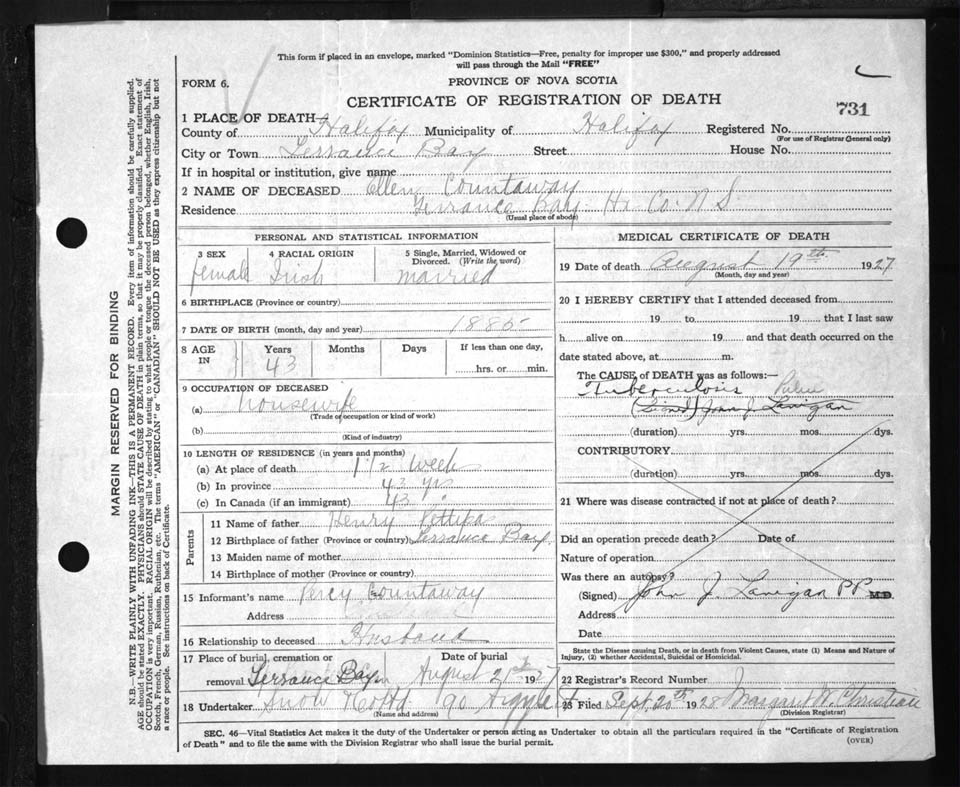 This form if placed in an envelope, marked "Dominion Statistics—Free, penalty for improper use $300," and properly addressed
will pass through the Mail "FREE"
FORM 6.
PROVINCE OF NOVA SCOTIA
CERTIFICATE OF REGISTRATION OF DEATH
731
1 PLACE OF DEATH
County of Halifax Municipality of Halifax Registered No.
(For use of Registrar General only)
City or Town Terrance Bay Street House No.
If in hospital or institution, give name
2 NAME OF DECEASED Ellen Countaway
Residence Terrance Bay Hx Co. N S.
(Usual place of abode)
PERSONAL AND STATISTICAL INFORMATION
3 SEX 4 RACIAL ORIGIN 5 Single, Married, Widowed or
Divorced. (Write the word)
female Irish married
6 BIRTHPLACE (Province or country)
7 DATE OF BIRTH (month, day and year) 1885
8 AGE IN Years Months Days If less than one day,
43 hrs. or min.
9 OCCUPATION OF DECEASED
(a) housewife
(Trade or occupation or kind of work)
(b)
(Kind of industry)
10 LENGTH OF RESIDENCE (in years and months)
(a) At place of death 1 1/2 week
(b) In province 43 yrs
(c) In Canada (if an immigrant) 43 "
Parents
11 Name of father Henry
12 Birthplace of father (Province or country) Terrance Bay.
13 Maiden name of mother
14 Birthplace of mother (Province or country)
15 Informant's name Percy Countaway
Address
16 Relationship to deceased Husband
17 Place of burial, cremation or Date of burial
removal Terrance Bay August 21st 1927
18 Undertaker Snow & Co Ltd 90 Argyle
(Name and address)
MEDICAL CERTIFICATE OF DEATH
19 Date of death August 19th 1927
(Month, day and year)
20 I HEREBY CERTIFY that I attended deceased from
19 to 19 that I last saw
h alive on 19 and that death occurred on the
date stated above, at m.
The CAUSE of DEATH was as follows:—
Tuberculosis
(Signed) John J. Lanigan
(duration) yrs. mos. dys.
CONTRIBUTORY
(duration) yrs. mos. dys.
21 Where was disease contracted if not at place of death?
Did an operation precede death? Date of
Nature of operation
Was there an autopsy?
(Signed) John J. Lanigan PP M.D.
Address
Date
State the Disease causing Death, or in death from Violent Causes, state (1) Means and Nature of
Injury, (2) whether Accidental, Suicidal or Homicidal.
22 Registrar's Record Number
23 Filed Sept. 20th 1928 Margaret W. Christian
(Division Registrar)
SEC. 46—Vital Statistics Act makes it the duty of the Undertaker or person acting as Undertaker to obtain all the particulars required in the "Certificate of Registration
of Death" and to file the same with the Division Registrar who shall issue the burial permit.
(OVER)
MARGIN RESERVED FOR BINDING
N.B.—WRITE PLAINLY WITH UNFADING INK—THIS IS A PERMANENT RECORD. Every item of information should be carefully supplied.
AGE should be stated EXACTLY. PHYSICIANS should STATE CAUSE OF DEATH in plain terms, so that it may be properly classified. Exact statement of
OCCUPATION is very important. RACIAL ORIGIN will be described by stating to what people or tongue the deceased person belonged, whether English, Irish,
Scotch, French, German, Russian, Ruthenian, etc. The terms "AMERICAN" or "CANADIAN" SHOULD NOT BE USED as they express citizenship but not
a race or people. See instructions on back of Certificate.